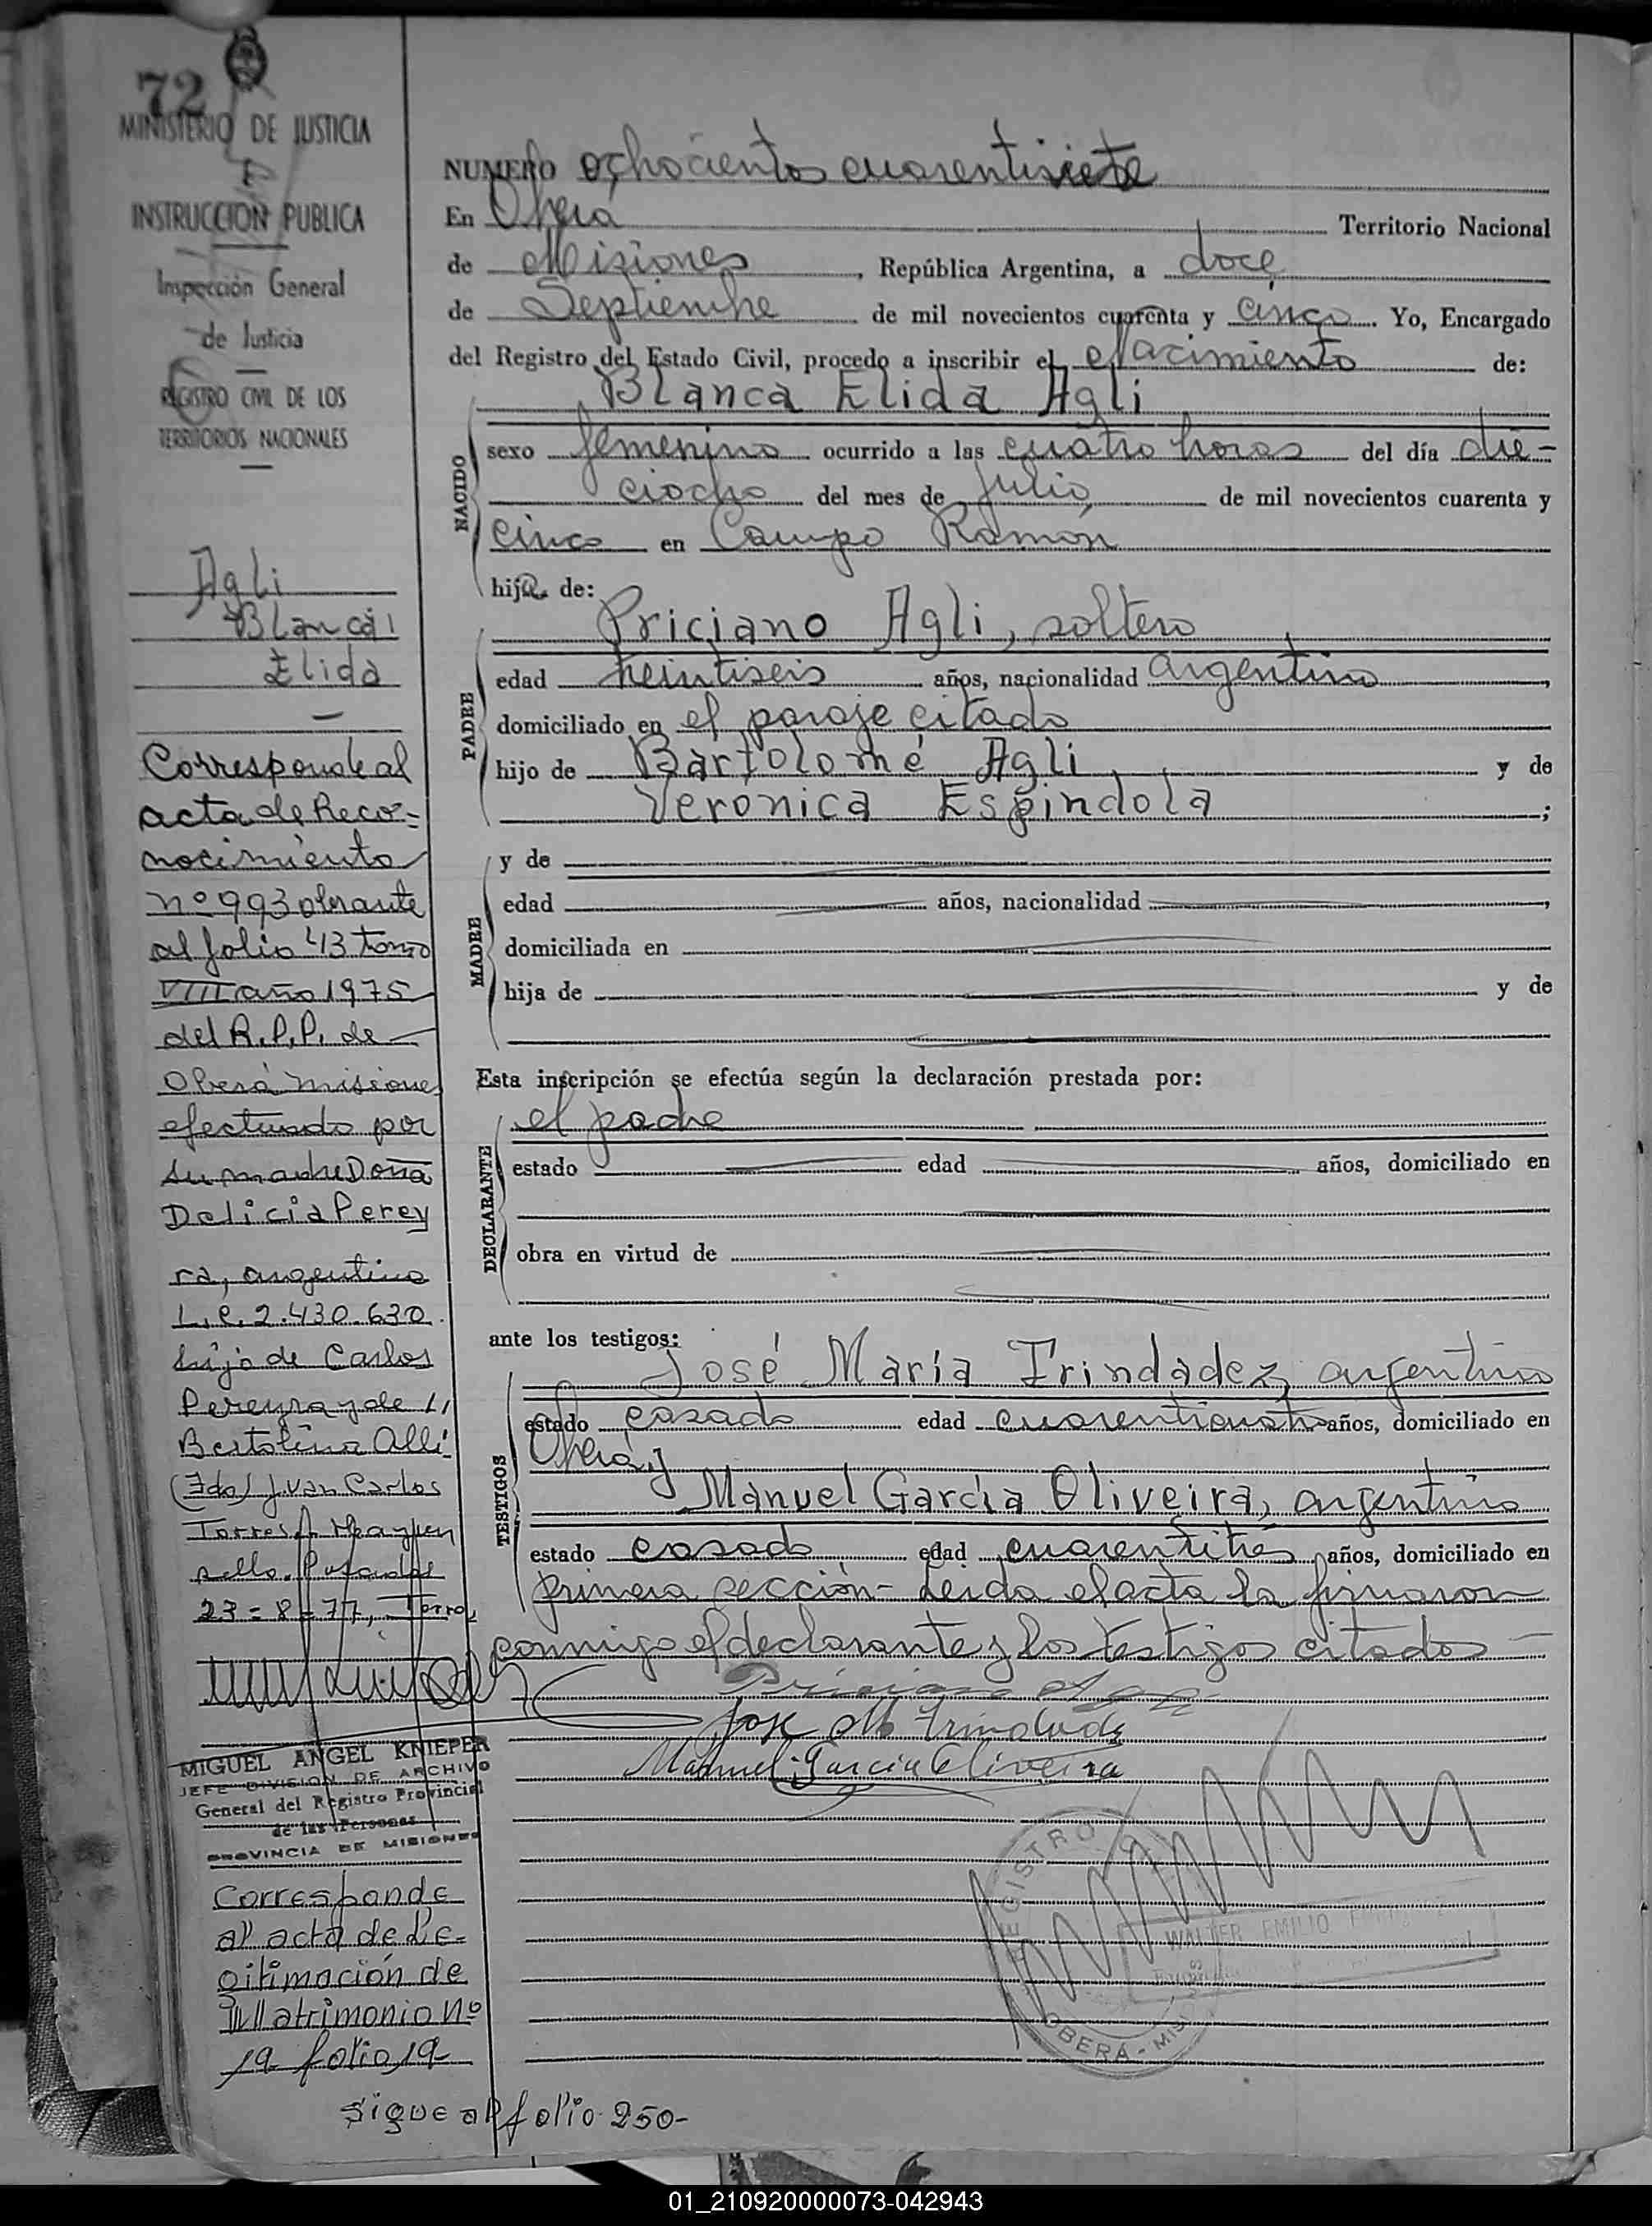 72
MINISTERIO DE JUSTICIA
E
INSTRUCCION PUBLICA
Inspección General
de Justicia
REGISTRO CIVIL DE LOS
TERRITORIOS NACIONALES
Agli
Blanca
Elida
Corresponde al
acta de Reco=
nocimiento
nº 993 obrante
al folio 43 tomo
VIII año 1975
del R.P.P. de
Oberá Misiones
efectuado por
su madre Doña
Delicia Perey
ra, argentina
L.C. 2.430.630.
hija de Carlos
Pereyra y de
Bertolina Alli
(Fdo) Juan Carlos
Torres. Hay un
sello. Posadas
23=8=77,
MIGUEL ANGEL KNIEPER
JEFE DIVISION DE ARCHIVO
General del Registro Provincial
de las Personas
PROVINCIA DE MISIONES
Corresponde
al acta de Le-
gitimación de
Matrimonio Nº
19 folio 19
sigue al folio 250-
NUMERO ochocientos cuarentisiete
En Oberá Territorio Nacional
de Misiones, República Argentina, a doce
de Septiembre de mil novecientos cuarenta y cinco. Yo, Encargado
del Registro del Estado Civil, procedo a inscribir el Nacimiento de:
Blanca Elida Agli
NACIDO
sexo femenino ocurrido a las cuatro horas del día die-
ciocho del mes de Julio de mil novecientos cuarenta y
cinco en Campo Ramón
hija de:
Priciano Agli, soltero
PADRE
edad veintiseis años, nacionalidad argentino,
domiciliado en el paraje citado
hijo de Bartolomé Agli y de
Verónica Espindola;
MADRE
y de
edad años, nacionalidad,
domiciliada en
hija de y de
Esta inscripción se efectúa según la declaración prestada por:
el padre
DECLARANTE
estado edad años, domiciliado en
obra en virtud de
ante los testigos:
José María Trindadez, argentino
TESTIGOS
estado casado edad cuarenticuatro años, domiciliado en
Oberá y
Manuel García Oliveira, argentino
estado casado edad cuarentitrés años, domiciliado en
primera sección- Leida el acta la firmaron
conmigo el declarante y los testigos citados
Jose M Trindade
Manuel Garcia Oliveira
REGISTRO
WALTER EMILIO
OBERA - MIS
01_210920000073-042943